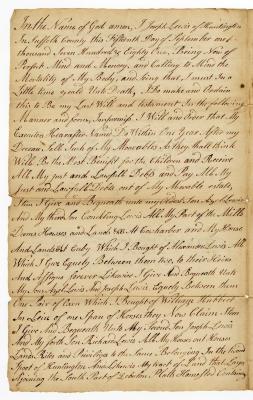 In the Name of God amen, I Joseph Lewis of Huntington
In Suffolk County this Fifteenth Day of September one
thousand Seven Hundred & Eighty One, Being Now of
Perfect Mind and Memory, and Calling to Mind the
Mortality of My Body, and that I must In a
Little time Yeald Unto Death, I Do make and Ordain
this to Be my Last Will and testament In the following
Manner and form, I Will and Order that My
Executors Hearafter Named Do Within One Year After my
Decease Sell Such of My Movables As they shall think
Will Be the Most Benefit for the Children and Receive
All My just and Lawfull Debts and Pay All My
Just and Lawfull Debts out of My Movable estate,
Item I Give and Bequeath unto my Son Lewis
And My third Son Lewis All My Part of the Mills
Houses and Lands At and My House
And Lands Which I Bought of Alexander Lewis All
Which I Give Equely Between them two, to their Heirs
And Assigns forever Likewise I Give And Bequeath Unto
My Sons Lewis And Joseph Lewis Equely Between them
One Pair of Oxen Which I Bought of William Hubbert
In Lein of one Span of Horses they Now Claim Item
I Give And Bequeath Unto My Second Son Joseph Lewis
And My forth Son Richard Lewis All My House out Houses
Land Rites and Priviledg to the Same Belonging In the
Spot of Huntington And Likewis My tract of Land that Lays
Ajoyning the South Part of Platt